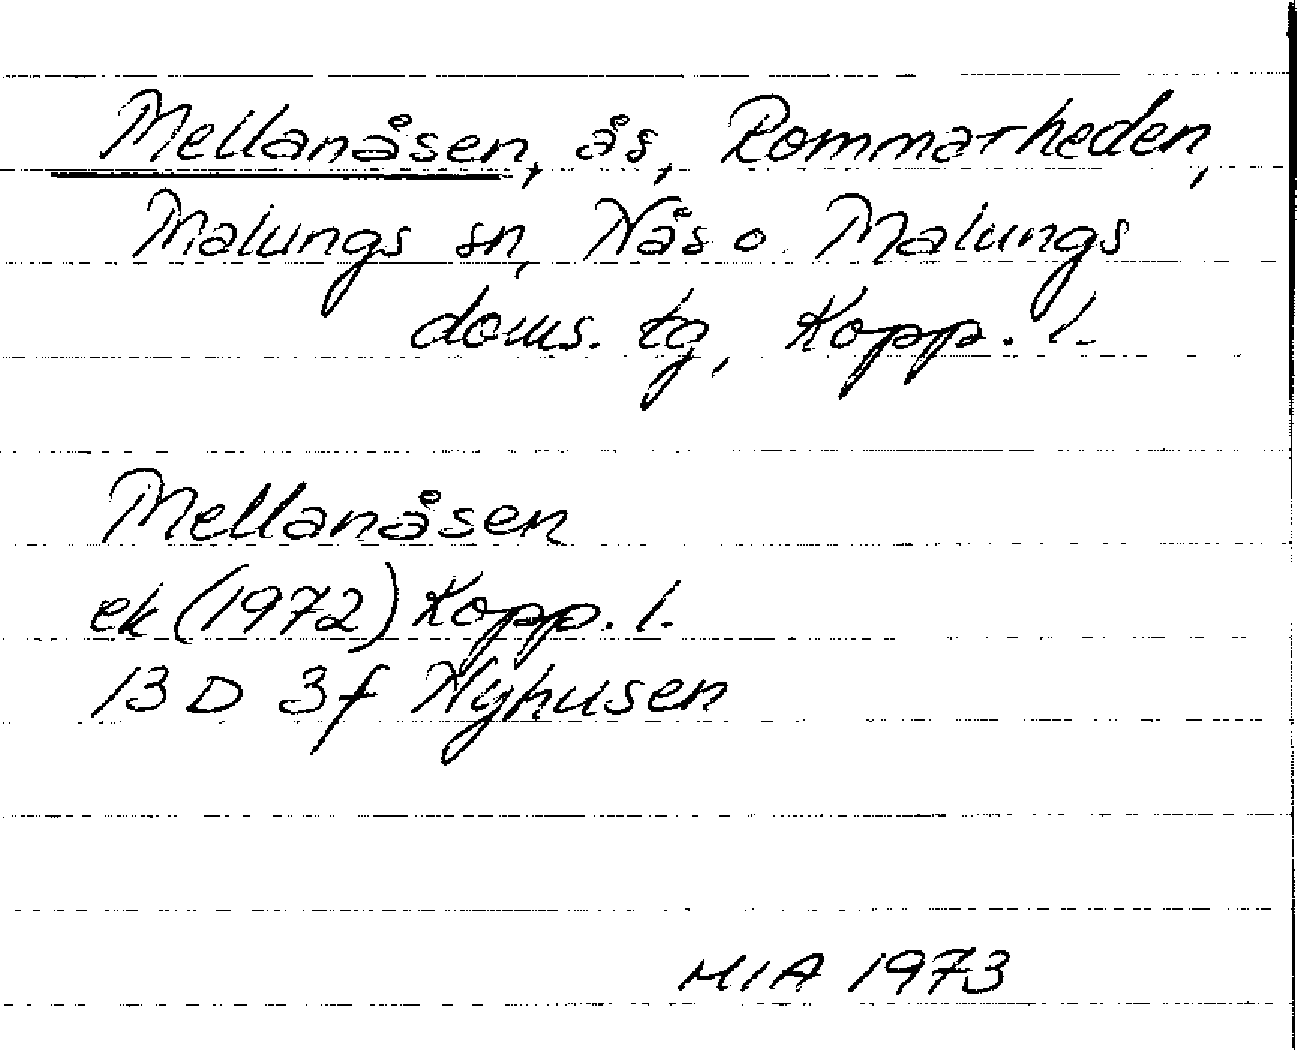 Mellanåsen, ås, Rommarheden,
Malungs sn, Nås o. Malungs
doms. tg, Kopp. l.
Mellanåsen
ek (1972) Kopp. l.
13 D 3f Nyhusen
MIA 1973